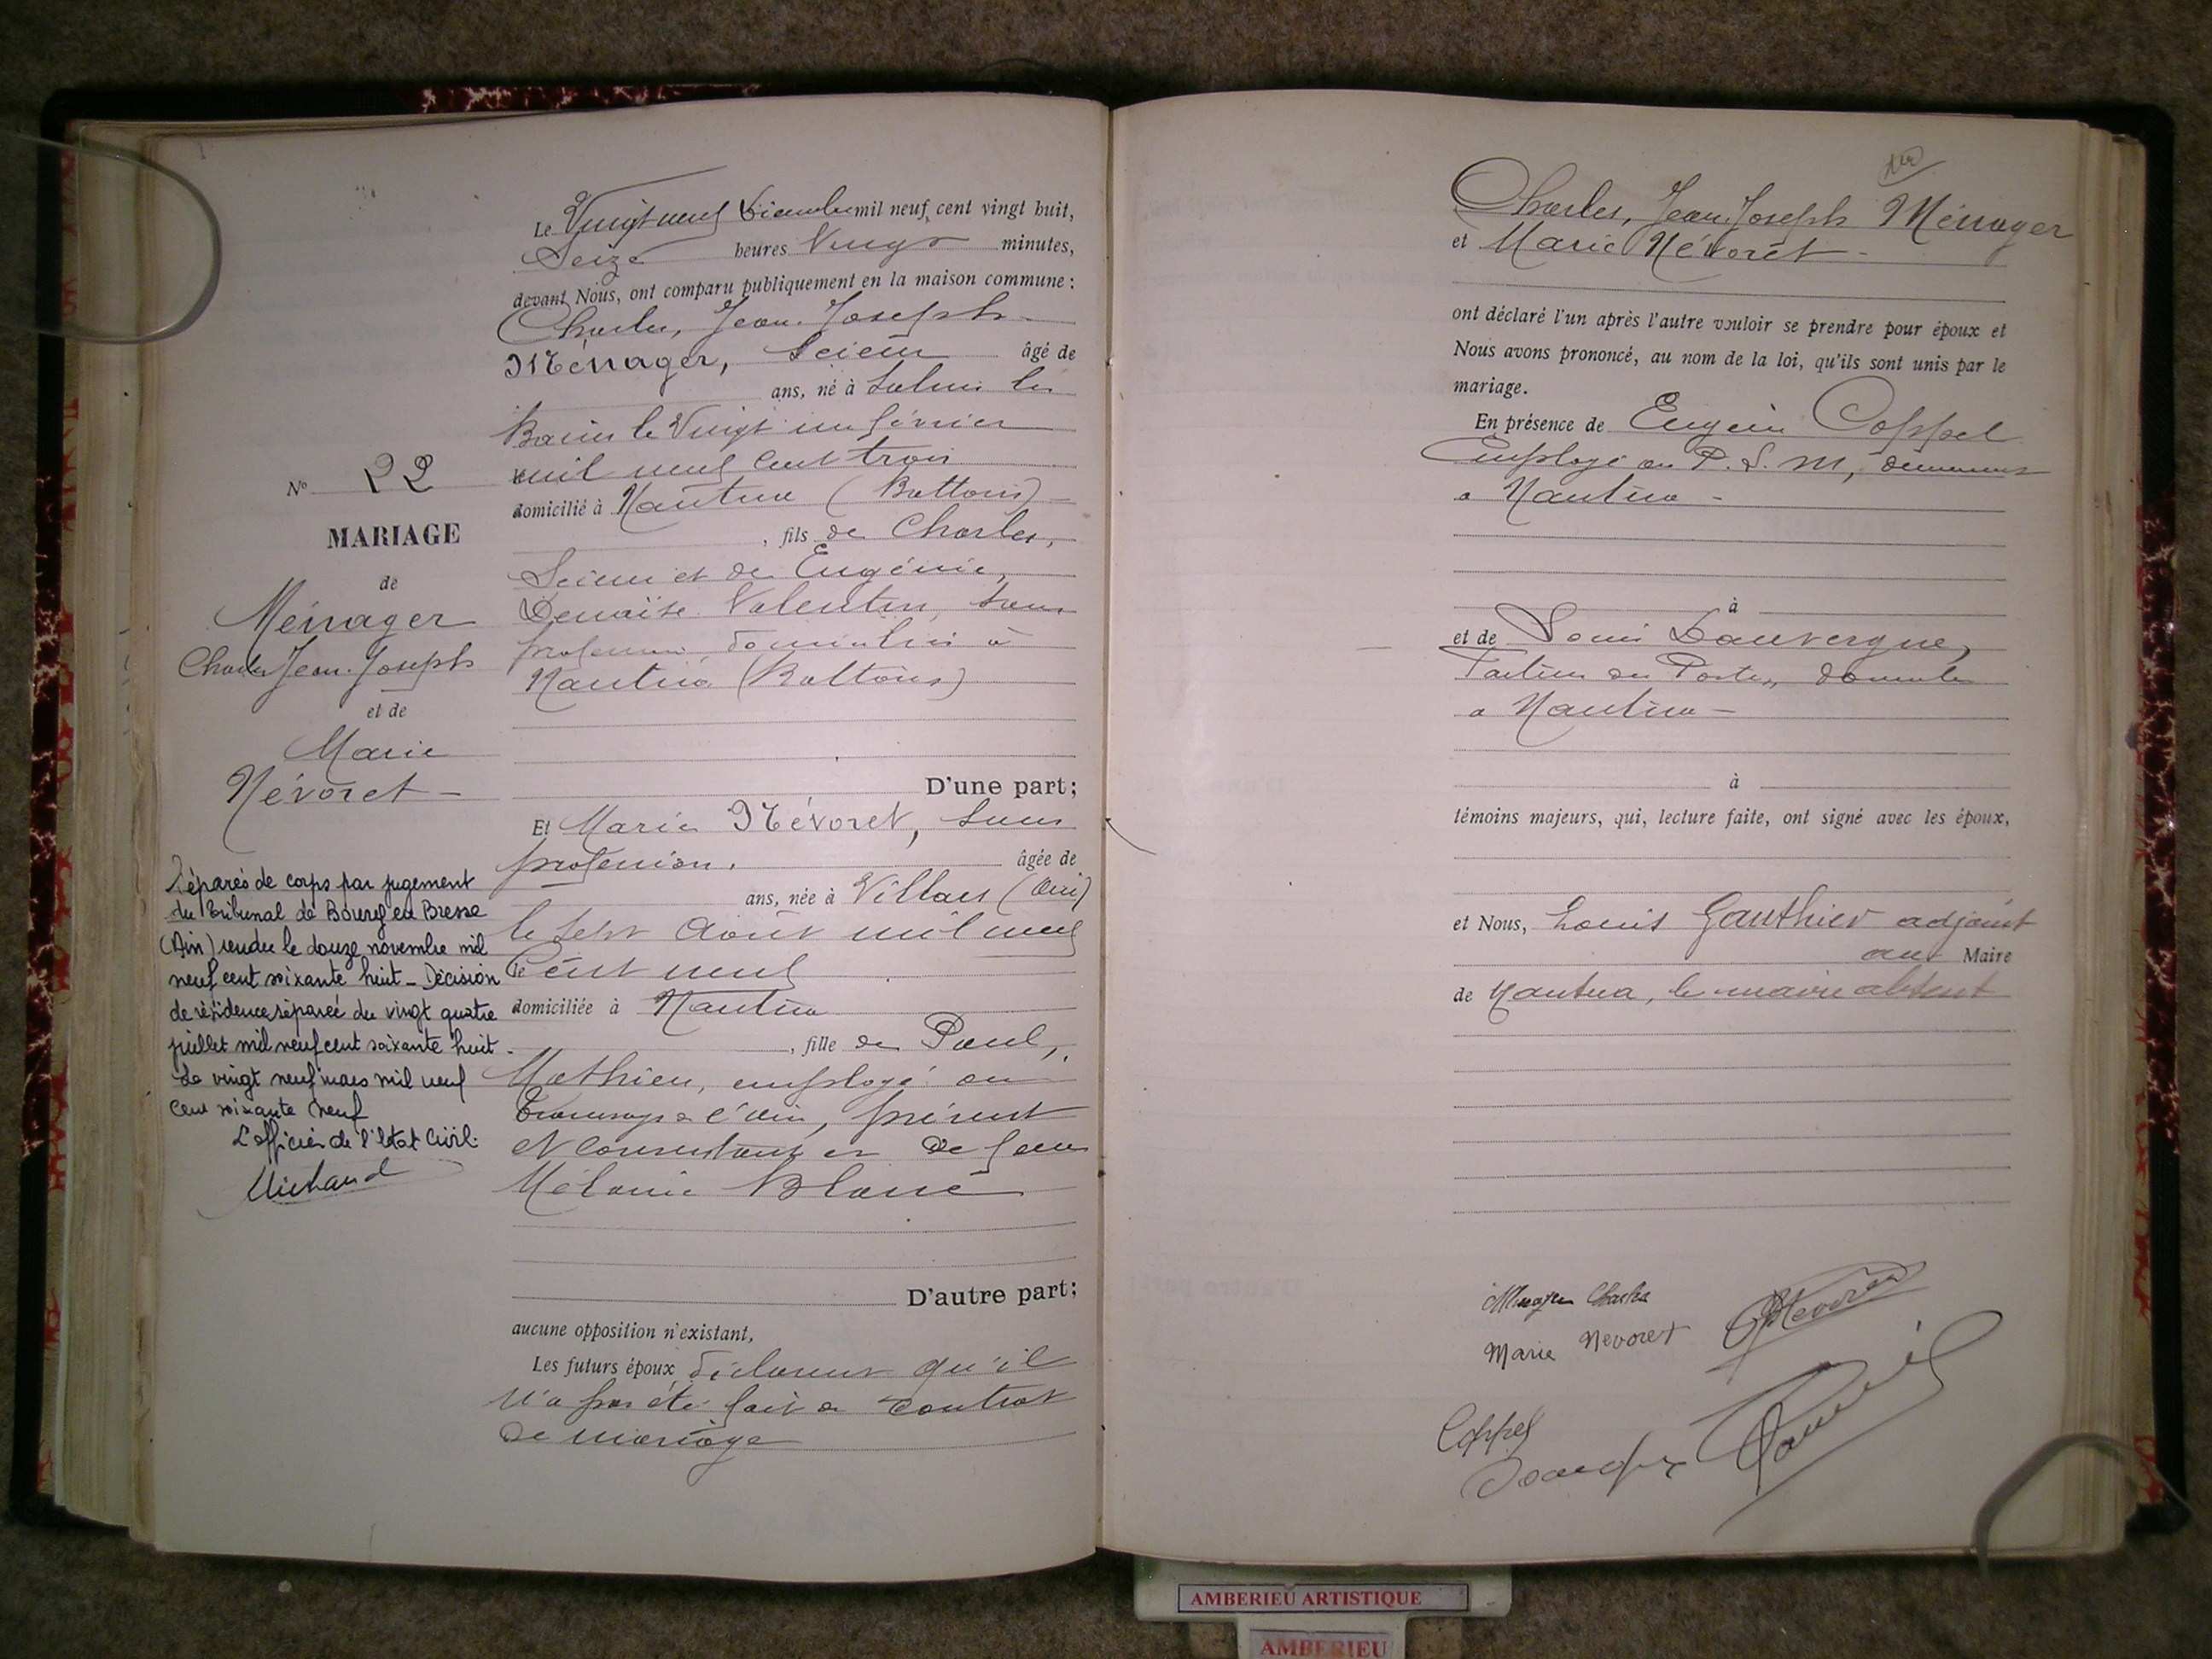 N° 22
MARIAGE
de
Ménager
Charles Jean-Joseph
et de
Marie
Névoret -
Séparés de corps par jugement
du Tribunal de Bourg en Bresse
(Ain) rendu le douze novembre mil
neuf cent soixante huit - Décision
de résidence séparée du vingt quatre
juillet mil neuf cent soixante huit -
Le vingt neuf mars mil neuf
cent soixante neuf
L'officier de l'Etat Civil.
Michaud
Le Vingt neuf Décembre mil neuf cent vingt huit,
Seize heures Vingt minutes,
devant Nous, ont comparu publiquement en la maison commune :
Charles, Jean-Joseph -
Ménager, Scieur âgé de
ans, né à Salins les
Bains le Vingt un février
mil neuf cent trois
domicilié à Nantua (Battoirs) -
, fils de Charles,
Scieur et de Eugénie,
Valentin, sans
profession, domiciliés à
Nantua (Battoirs)
D'une part;
Et Marie Névoret, sans
profession, âgée de
ans, née à Villars (Ain)
le sept Août mil neuf
Cent neuf
domiciliée à Nantua
, fille de Paul,
Mathieu, employé au
Tramways de l'Ain, présent
et consentant et de feue
Mélanie Blanc
D'autre part;
aucune opposition n'existant,
Les futurs époux déclarent qu'il
n'a pas été fait de contrat
de mariage
Charles, Jean-Joseph Ménager
et Marie Névoret -
ont déclaré l'un après l'autre vouloir se prendre pour époux et
Nous avons prononcé, au nom de la loi, qu'ils sont unis par le
mariage.
En présence de Eugène Coppel
Employé au P. L. M,
à Nantua -
à
et de Louis Dauvergne,
Facteur des Postes,
à Nantua -
à
témoins majeurs, qui, lecture faite, ont signé avec les époux,
et Nous, Louis Gauthier adjoint
au Maire
de Nantua, le maire absent
Ménager Charles
Marie Nevoret Nevoret
Coppel
AMBERIEU ARTISTIQUE
AMBERIEU